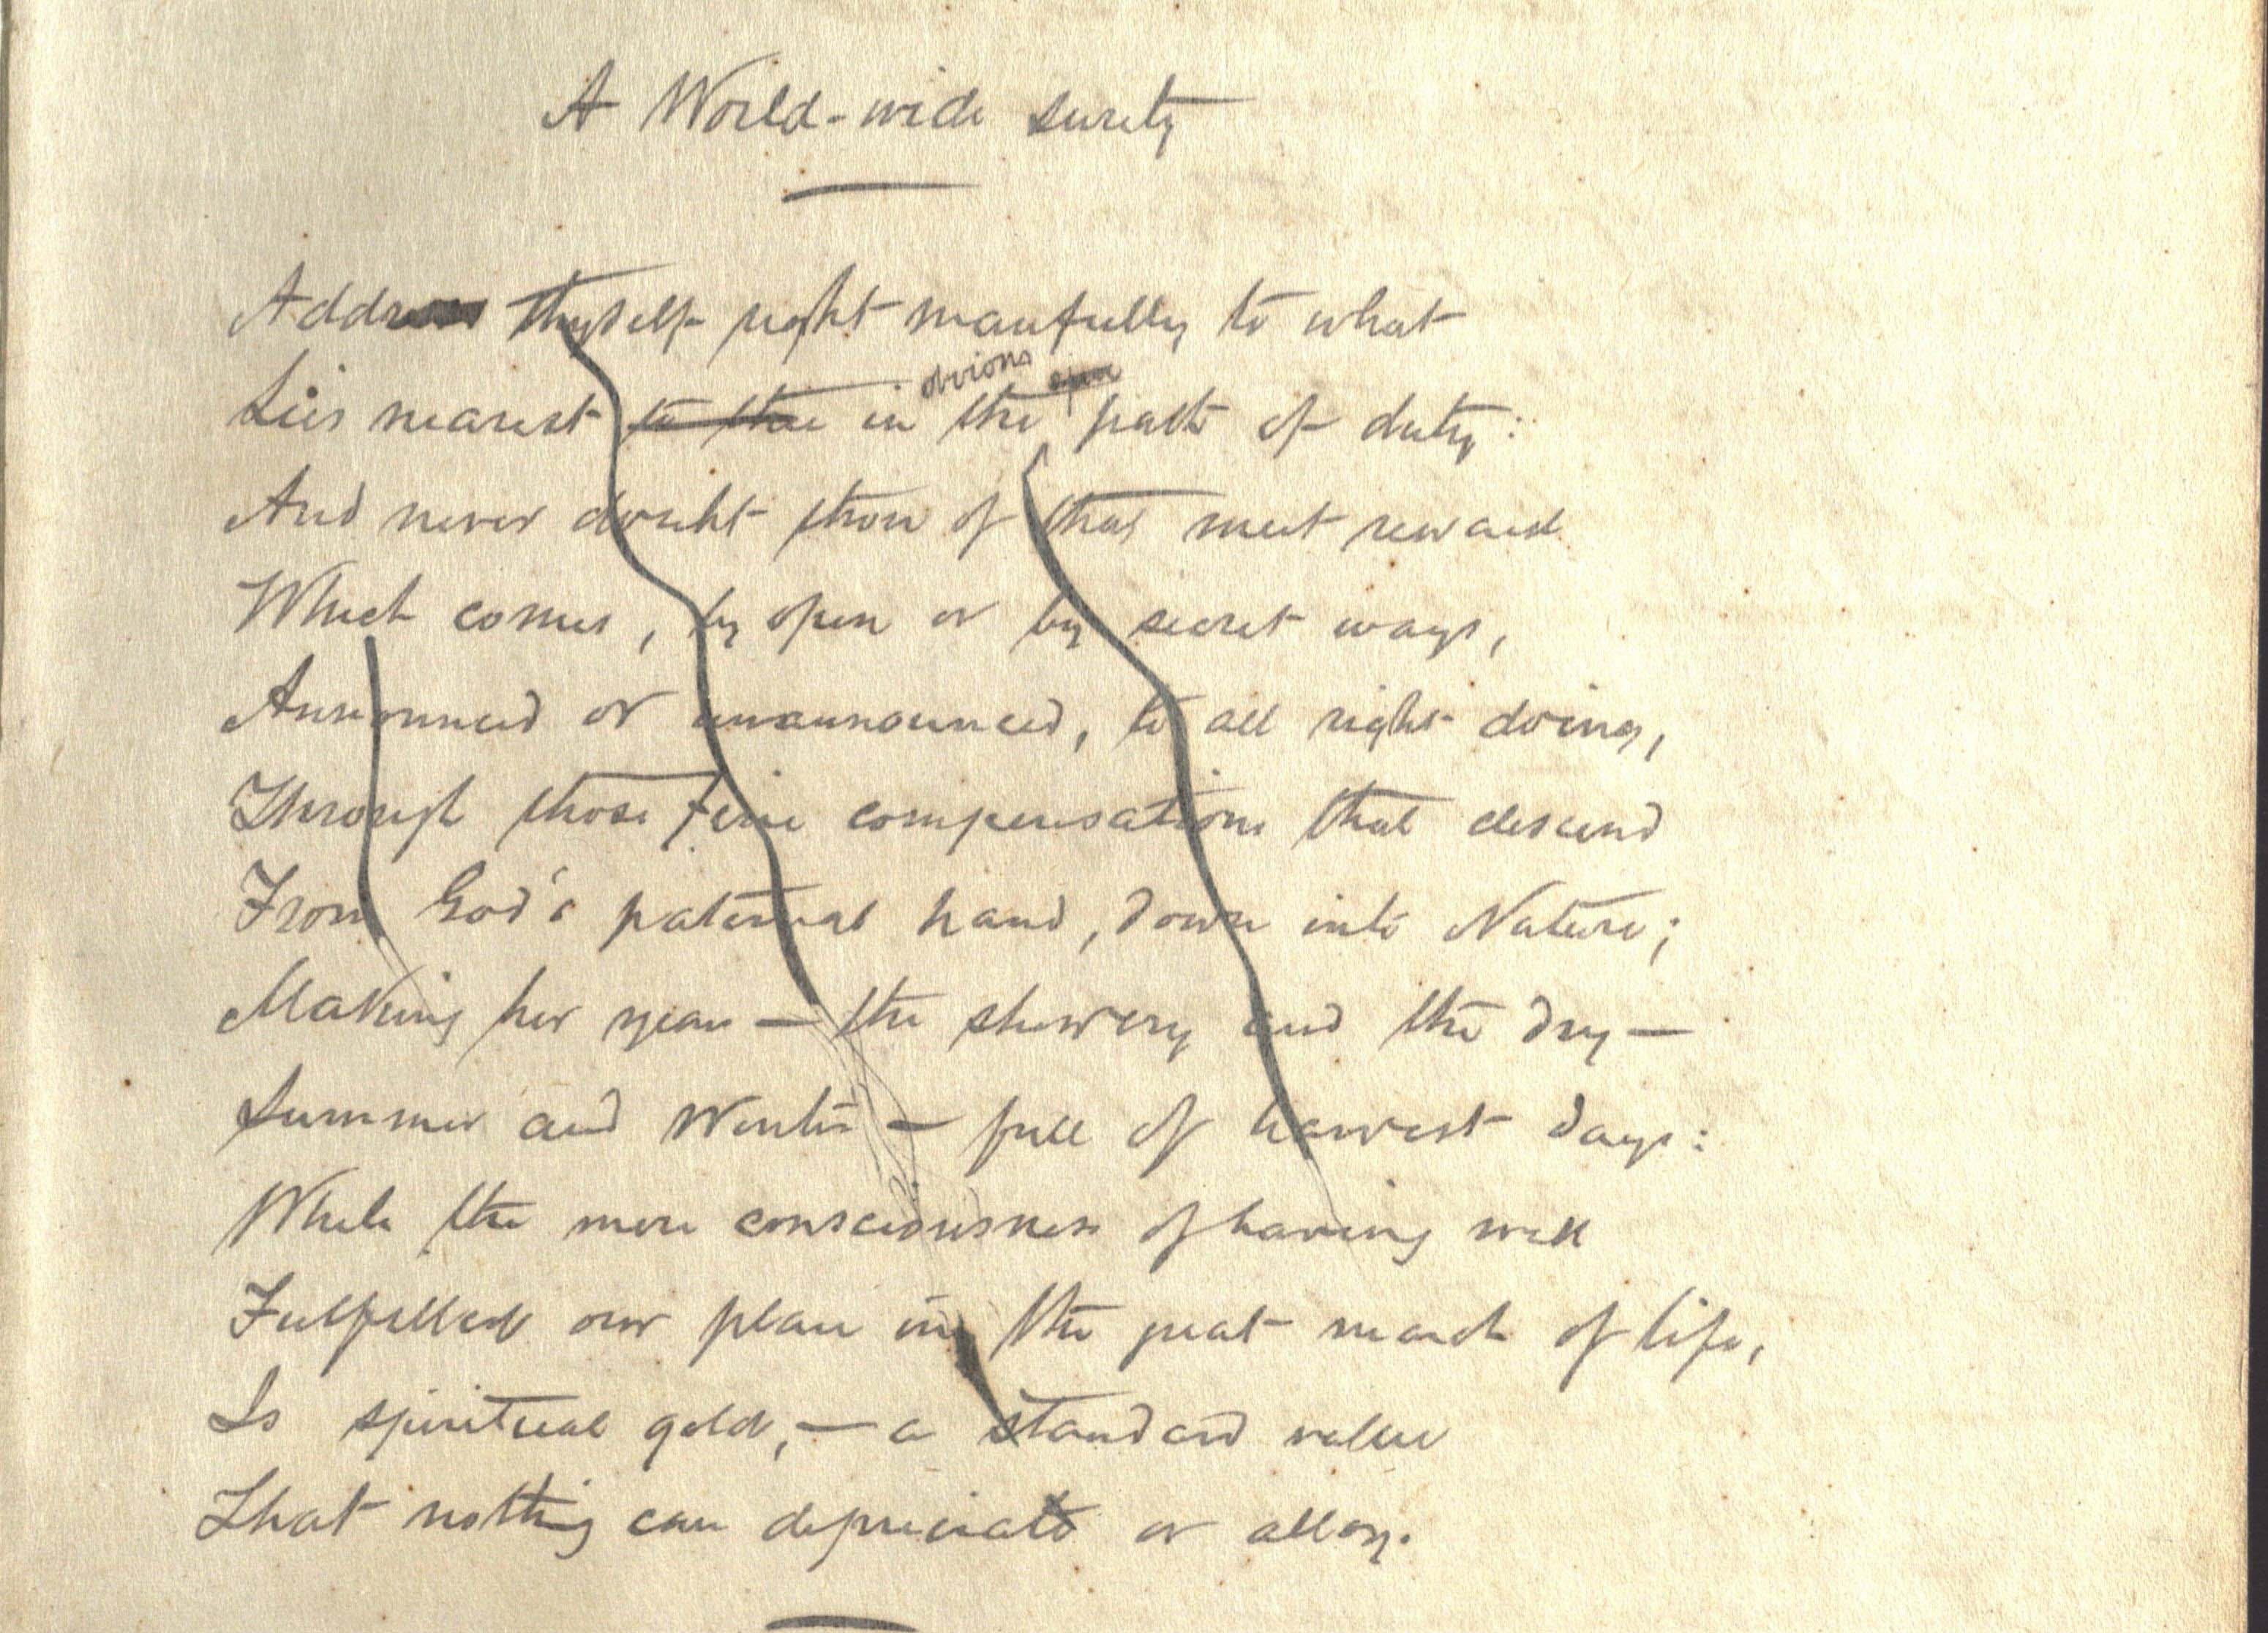 A World-wide surety
Address thyself right manfully to what
obvious
Lies nearest to thee in the path of duty:
And never doubt thou of that meet reward
Which comes, by open or by secret ways,
Announced or unannounced, to all right doing,
Through those fine compensations that descend
From God's paternal hand, down into Nature;
Making her year — the showery and the dry —
Summer and Winter — full of harvest days:
While the mere consciousness of having well
Fulfilled our plan in the great march of life,
Is spiritual gold, — a standard value
That nothing can depreciate or alloy.